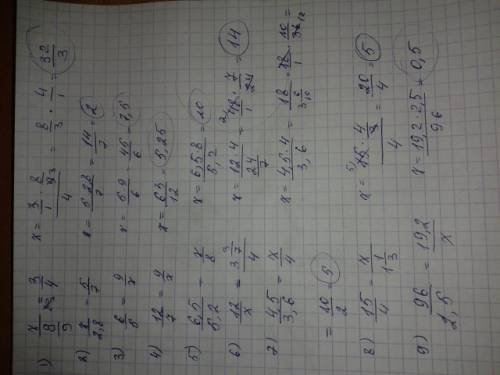 1) x/(8/9) = 3/4 x = 3/1 · 8/9 / 4 = 8/3 · 4/1 = 32/3
2) x/2,8 = 5/7 x = 5·2,8/7 = 14/7 = 2
3) 6/5 = 9/x x = 5·9/6 = 45/6 = 7,5
4) 12/7 = 9/x x = 63/12 = 5,25
5) 6,5/5,2 = x/8 x = 6,5·8/5,2 = 10
6) 12/x = 3 3/7 / 4 x = 12·4/(24/7) = 48/1 · 7/24 = 14
7) 4,5/3,6 = x/4 x = 4,5·4/3,6 = 18/(3 6/10) = 18/1 · 10/36 =
= 10/2 = 5
8) 15/4 = x/(1 1/3) x = 15 · 4/3 / 4 = 20/4 = 5
9) 96/2,5 = 19,2/x x = 19,2·2,5/96 = 0,5